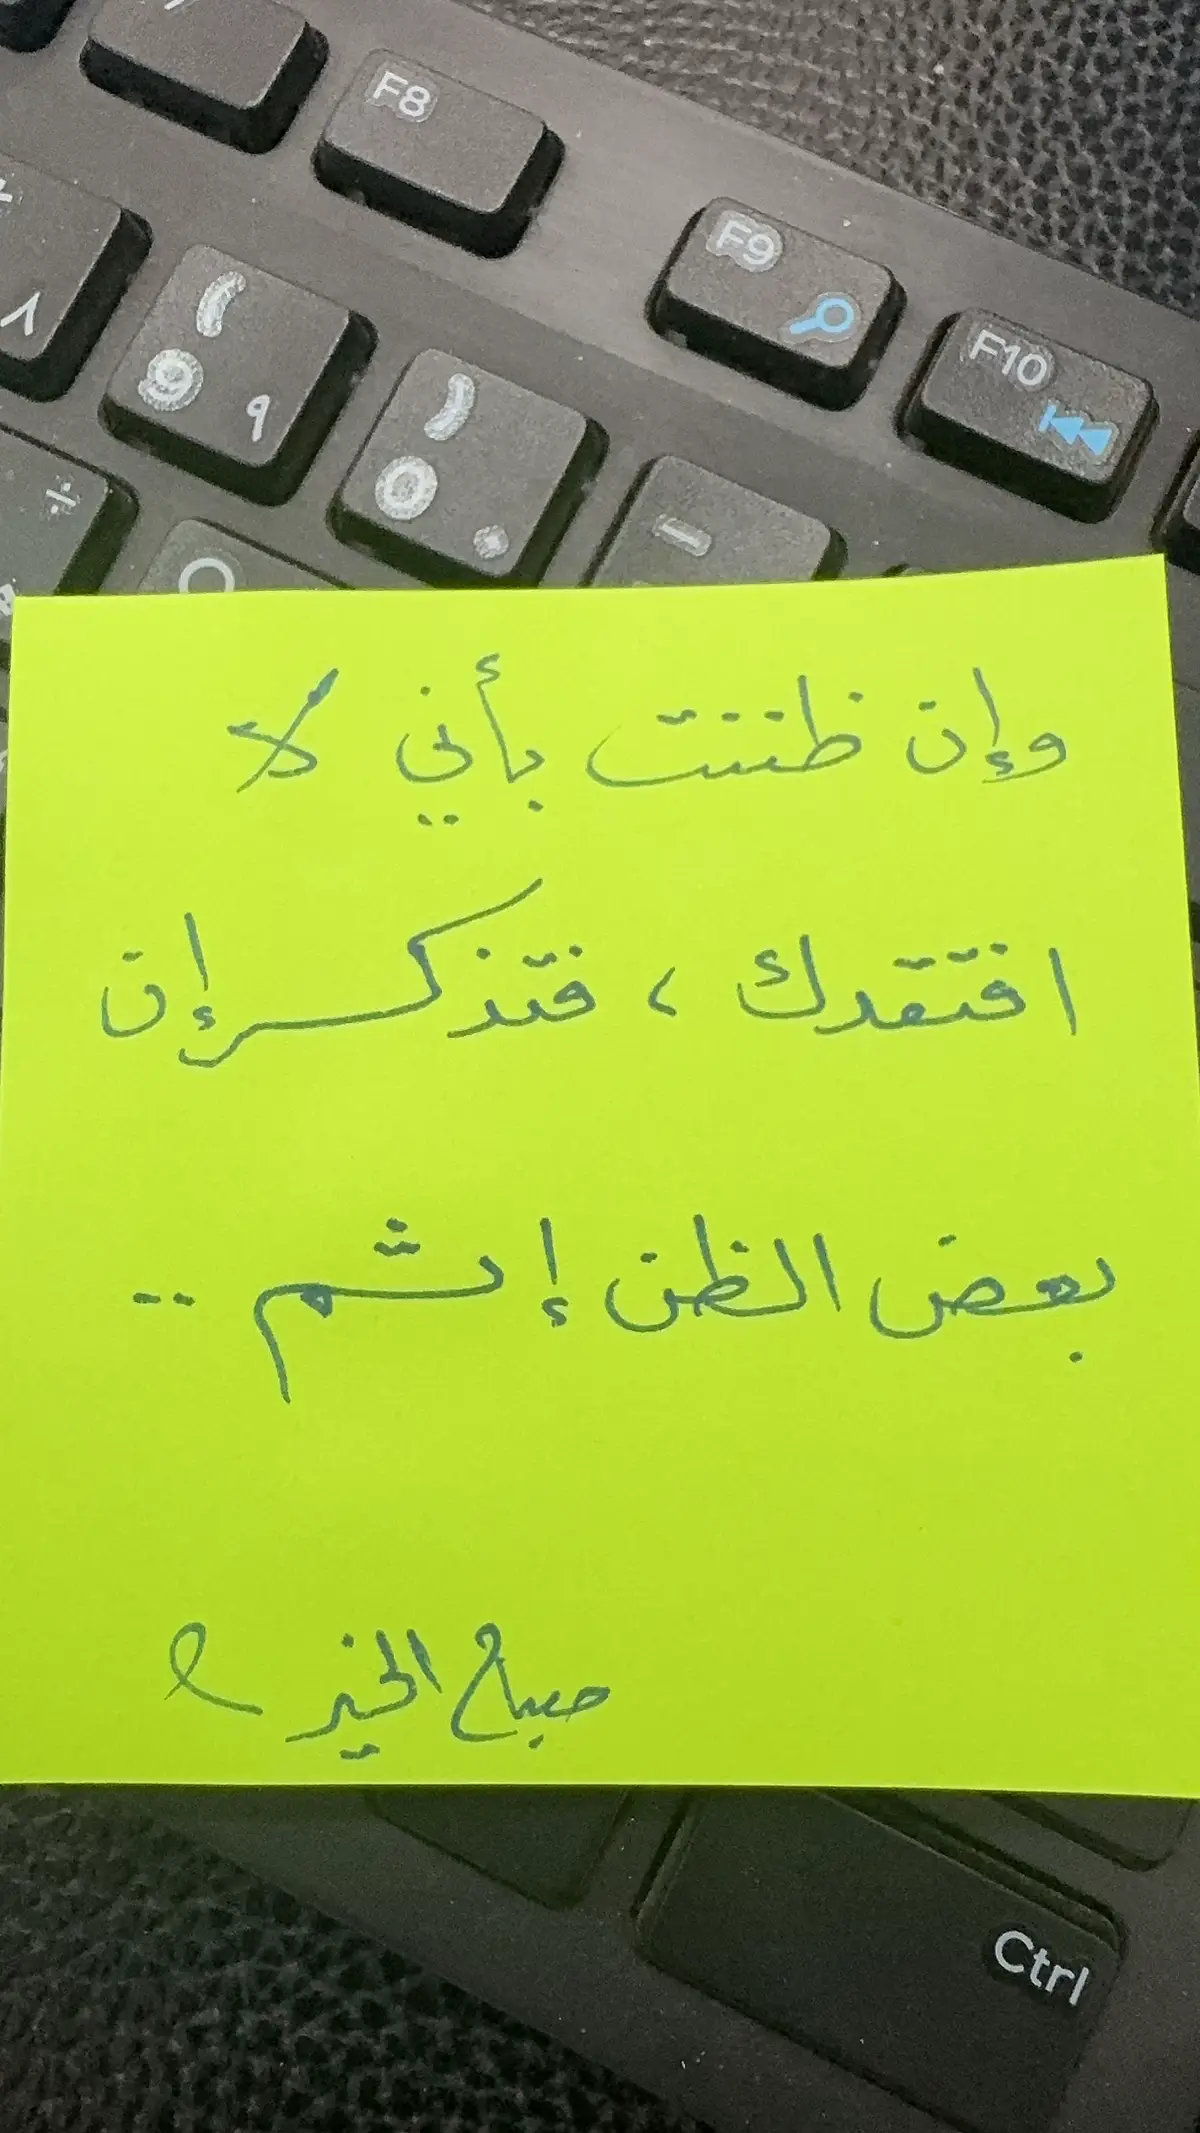 F8
F9
F10
٨
( 9 ٩
) 0 .
÷
O
وإن ظننت بأني لا
افتقدك ، فتذكر إن
بعض الظن إثم ..
صباح الخير
Ctrl